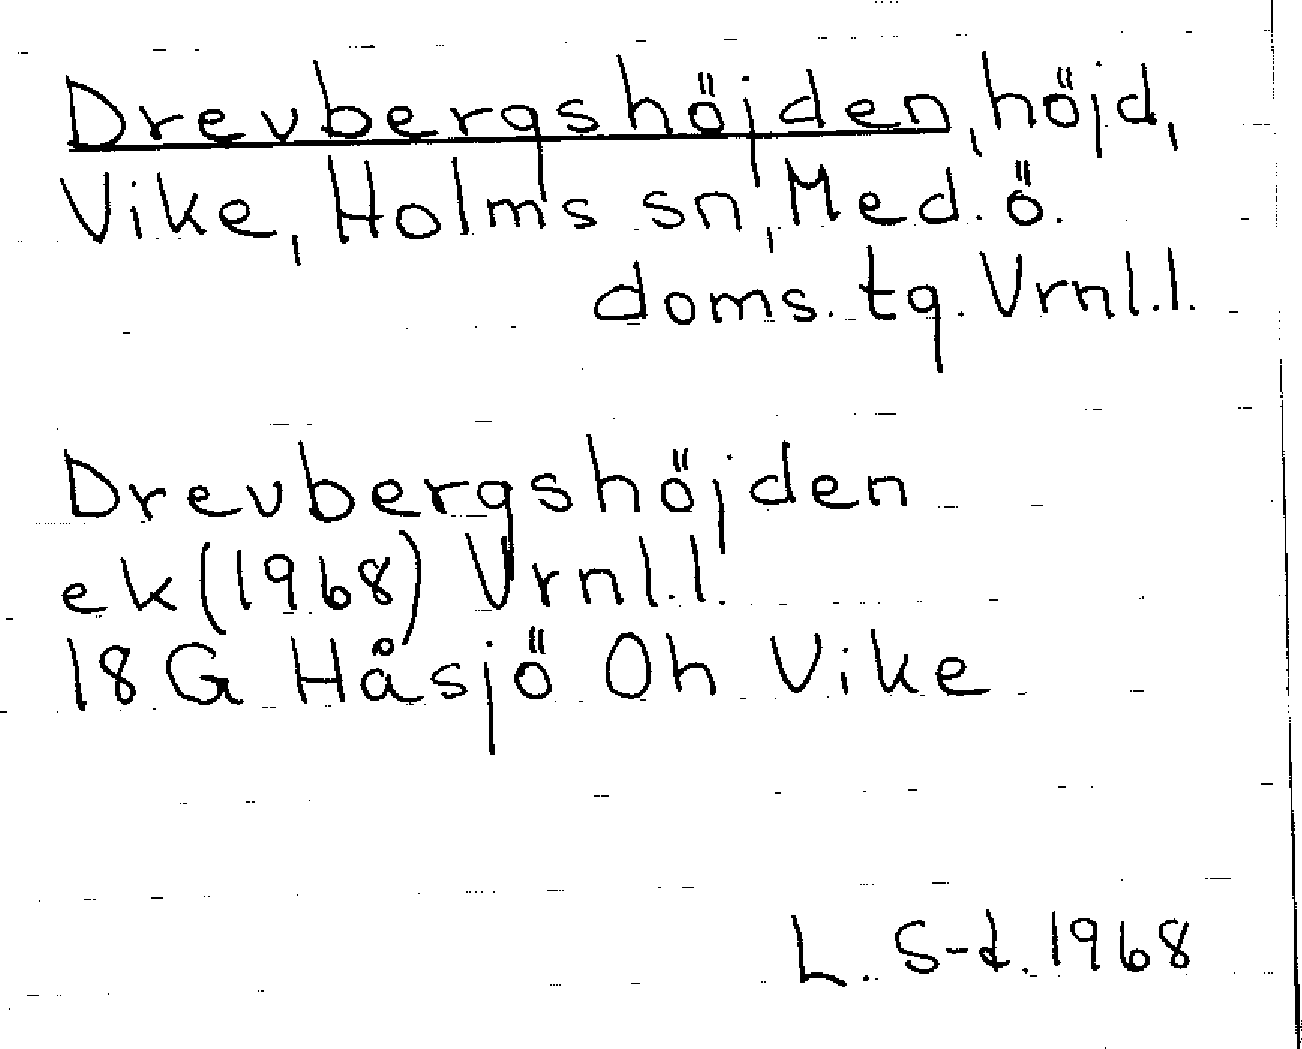 Drevbergshöjden, höjd,
Vike, Holms sn, Med. ö.
doms. tg. Vrnl.l.
Drevbergshöjden
ek (1968) Vrnl.l.
18 G Håsjö Oh Vike
L. S-d. 1968